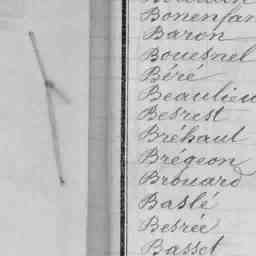 Bonenfan
Baron
Bouesnel
Béré
Beaulieu
Besrest
Bréhaut
Brégeon
Brouard
Baslé
Besrée
Basset